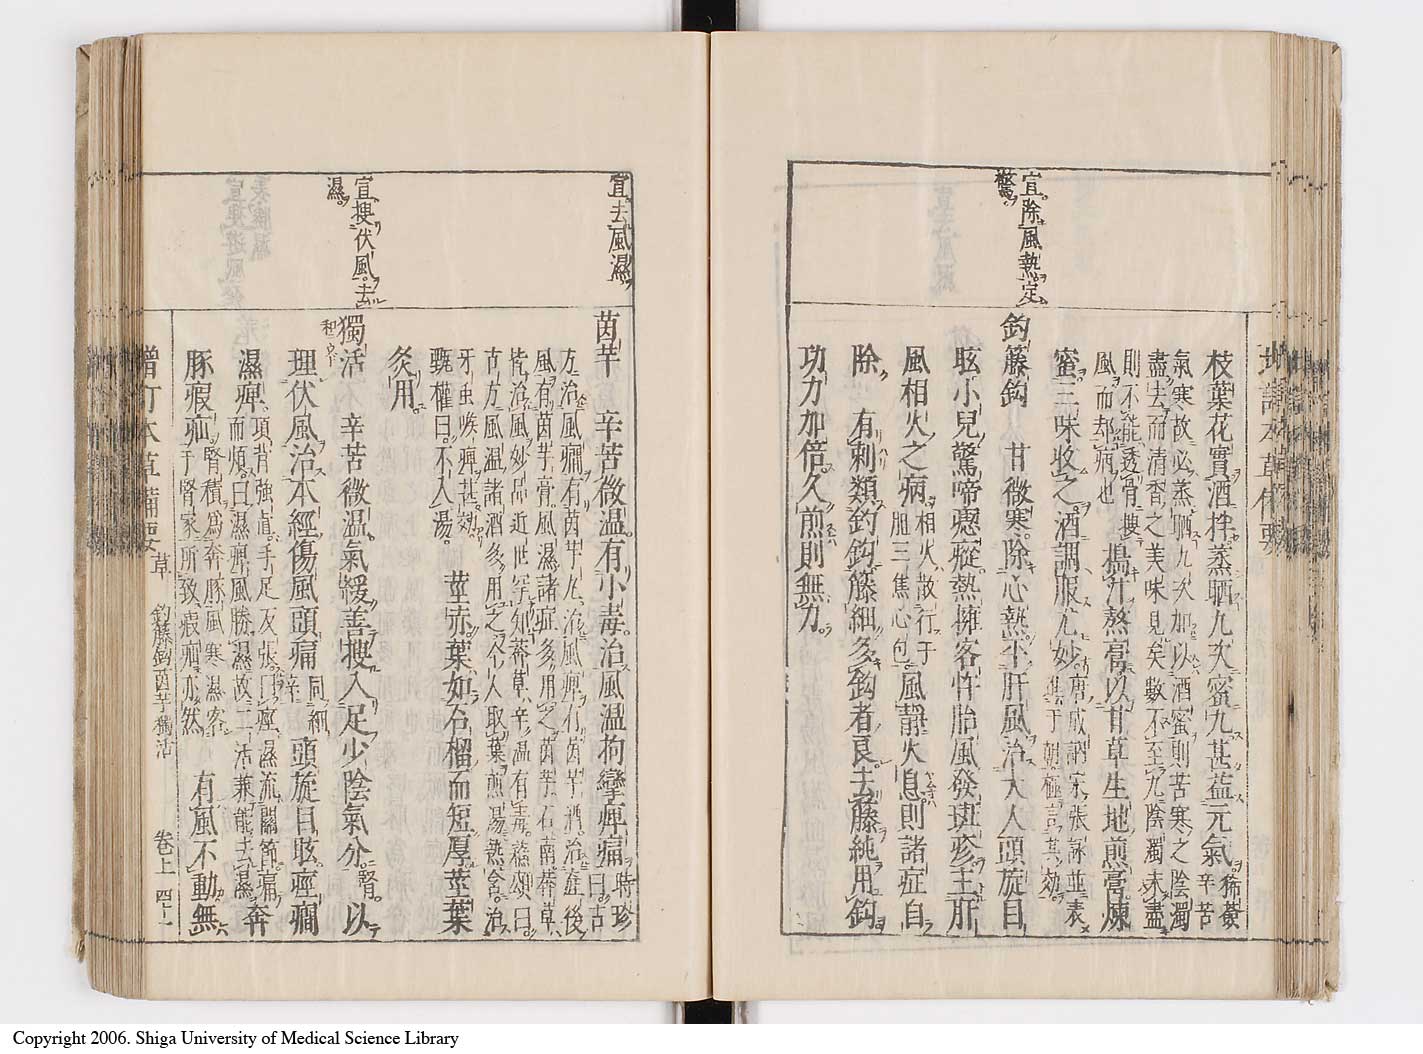 宜除風熱定
驚
枝葉花實酒拌蒸晒九次蜜丸甚益元氣豨薟辛苦
氣寒故必蒸晒九次加以酒蜜則苦寒之陰濁
盡去而清香之美味見矣數不至九陰濁未盡
則不能透骨搜
風而却病也
搗汁熬膏以甘草生地煎膏煉
蜜三味收之酒調服尤妙
鉤藤鈎 甘微寒除心熱平肝風治大人頭旋目
眩小兒驚啼瘛瘲熱擁客忤胎風發斑疹主肝
風相火之病相火散行于
胆三焦心包風靜火息則諸症自
除 有刺類釣鈎藤細多鈎者良去藤純用鈎
功力加倍久煎則無力
宜去風濕
宜搜伏風去
濕
茵芋 辛苦微温有小毒治風温拘攣痺痛時珍
曰古
方治風癇有茵芋丸治風痺有茵芋酒治産後
風有茵芋膏風濕諸症多用之茵芋石南莽草
皆治風妙品近世罕知
古方風温諸酒多用之今人取葉煎湯熱含治
牙虫喉痺甚效
甄權曰不入湯
莖赤葉如石榴而短厚莖葉
炙用
獨活 辛苦微温氣緩善搜入足少陰氣分腎以
理伏風治本經傷風頭痛同細
辛頭旋目眩痙癇
濕痺項背強直手足反張曰痙濕流關節痛
而煩曰濕痺風勝濕故二活兼能去濕奔
豚瘕疝腎積爲奔豚風寒濕客
于腎家所致瘕疝亦然 有風不動無
增訂本草備要 草 鈎藤鈎茵芋獨活 卷上
Copyright 2006. Shiga University of Medical Science Library